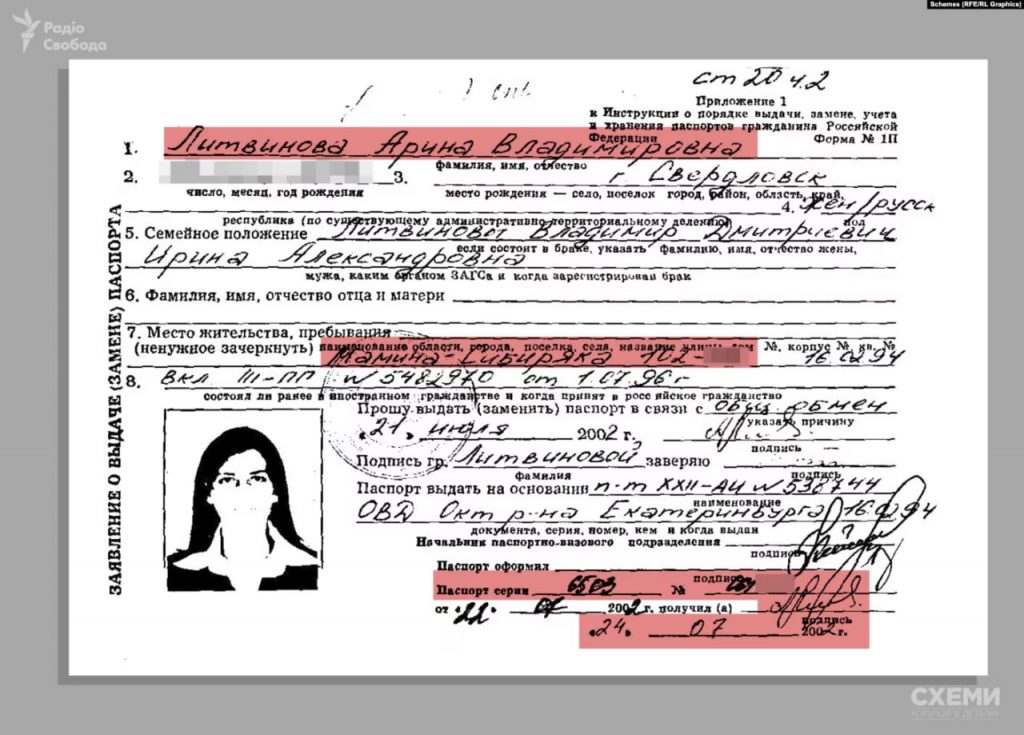 Schemes (RFE/RL Graphics)
Радіо
Свобода
ст 20 ч.2
Приложение 1
к Инструкции о порядке выдачи, замене, учета
и хранения паспортов гражданина Российской
Федерации Форма № 1П
ЗАЯВЛЕНИЕ О ВЫДАЧЕ (ЗАМЕНЕ) ПАСПОРТА
1. Литвинова Арина Владимировна
фамилия, имя, отчество
2. 3. г. Свердловск
число, месяц, год рождения место рождения — село, поселок город, район, область, край,
4. жен/русск
республика (по существующему административно-территориальному делению) пол
5. Семейное положение Литвиновы Владимир Дмитриевич
если состоит в браке, указать фамилию, имя, отчество жены,
Ирина Александровна
мужа, каким органом ЗАГСа и когда зарегистрирован брак
6. Фамилия, имя, отчество отца и матери
7. Место жительства, пребывания
(ненужное зачеркнуть) наименование области, города, поселка, села, название улицы, дом №, корпус №, кв. №
Мамина-Сибиряка 102- 16.02.94
8. вкл III-ПП № 5482970 от 1.07.96г
состоял ли ранее в иностранном гражданстве и когда принят в российское гражданство
Прошу выдать (заменить) паспорт в связи с общ. обмен
указать причину
21 июля 2002 г.
подпись
Подпись гр. Литвиновой заверяю
фамилия подпись
Паспорт выдать на основании п-т XXII-АИ № 538744
наименование
ОВД Окт р-на Екатеринбурга 16.02.94
документа, серия, номер, кем и когда выдан
Начальник паспортно-визового подразделения
подпись
Паспорт оформил
подпись
Паспорт серии 6503 №
от 22 07 2002 г. получил (а)
подпись
24. 07 2002 г.
СХЕМИ
КОРУПЦІЯ В ДЕТАЛЯХ